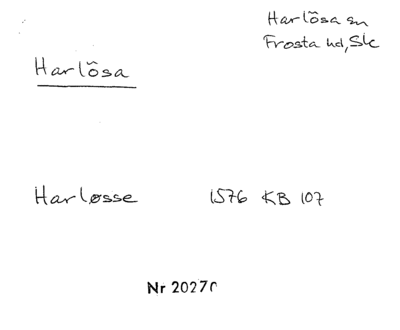 Harlõsa sn
Frosta hd, Sk
Harlõsa
Harløsse 1576 KB 107
Nr 20270